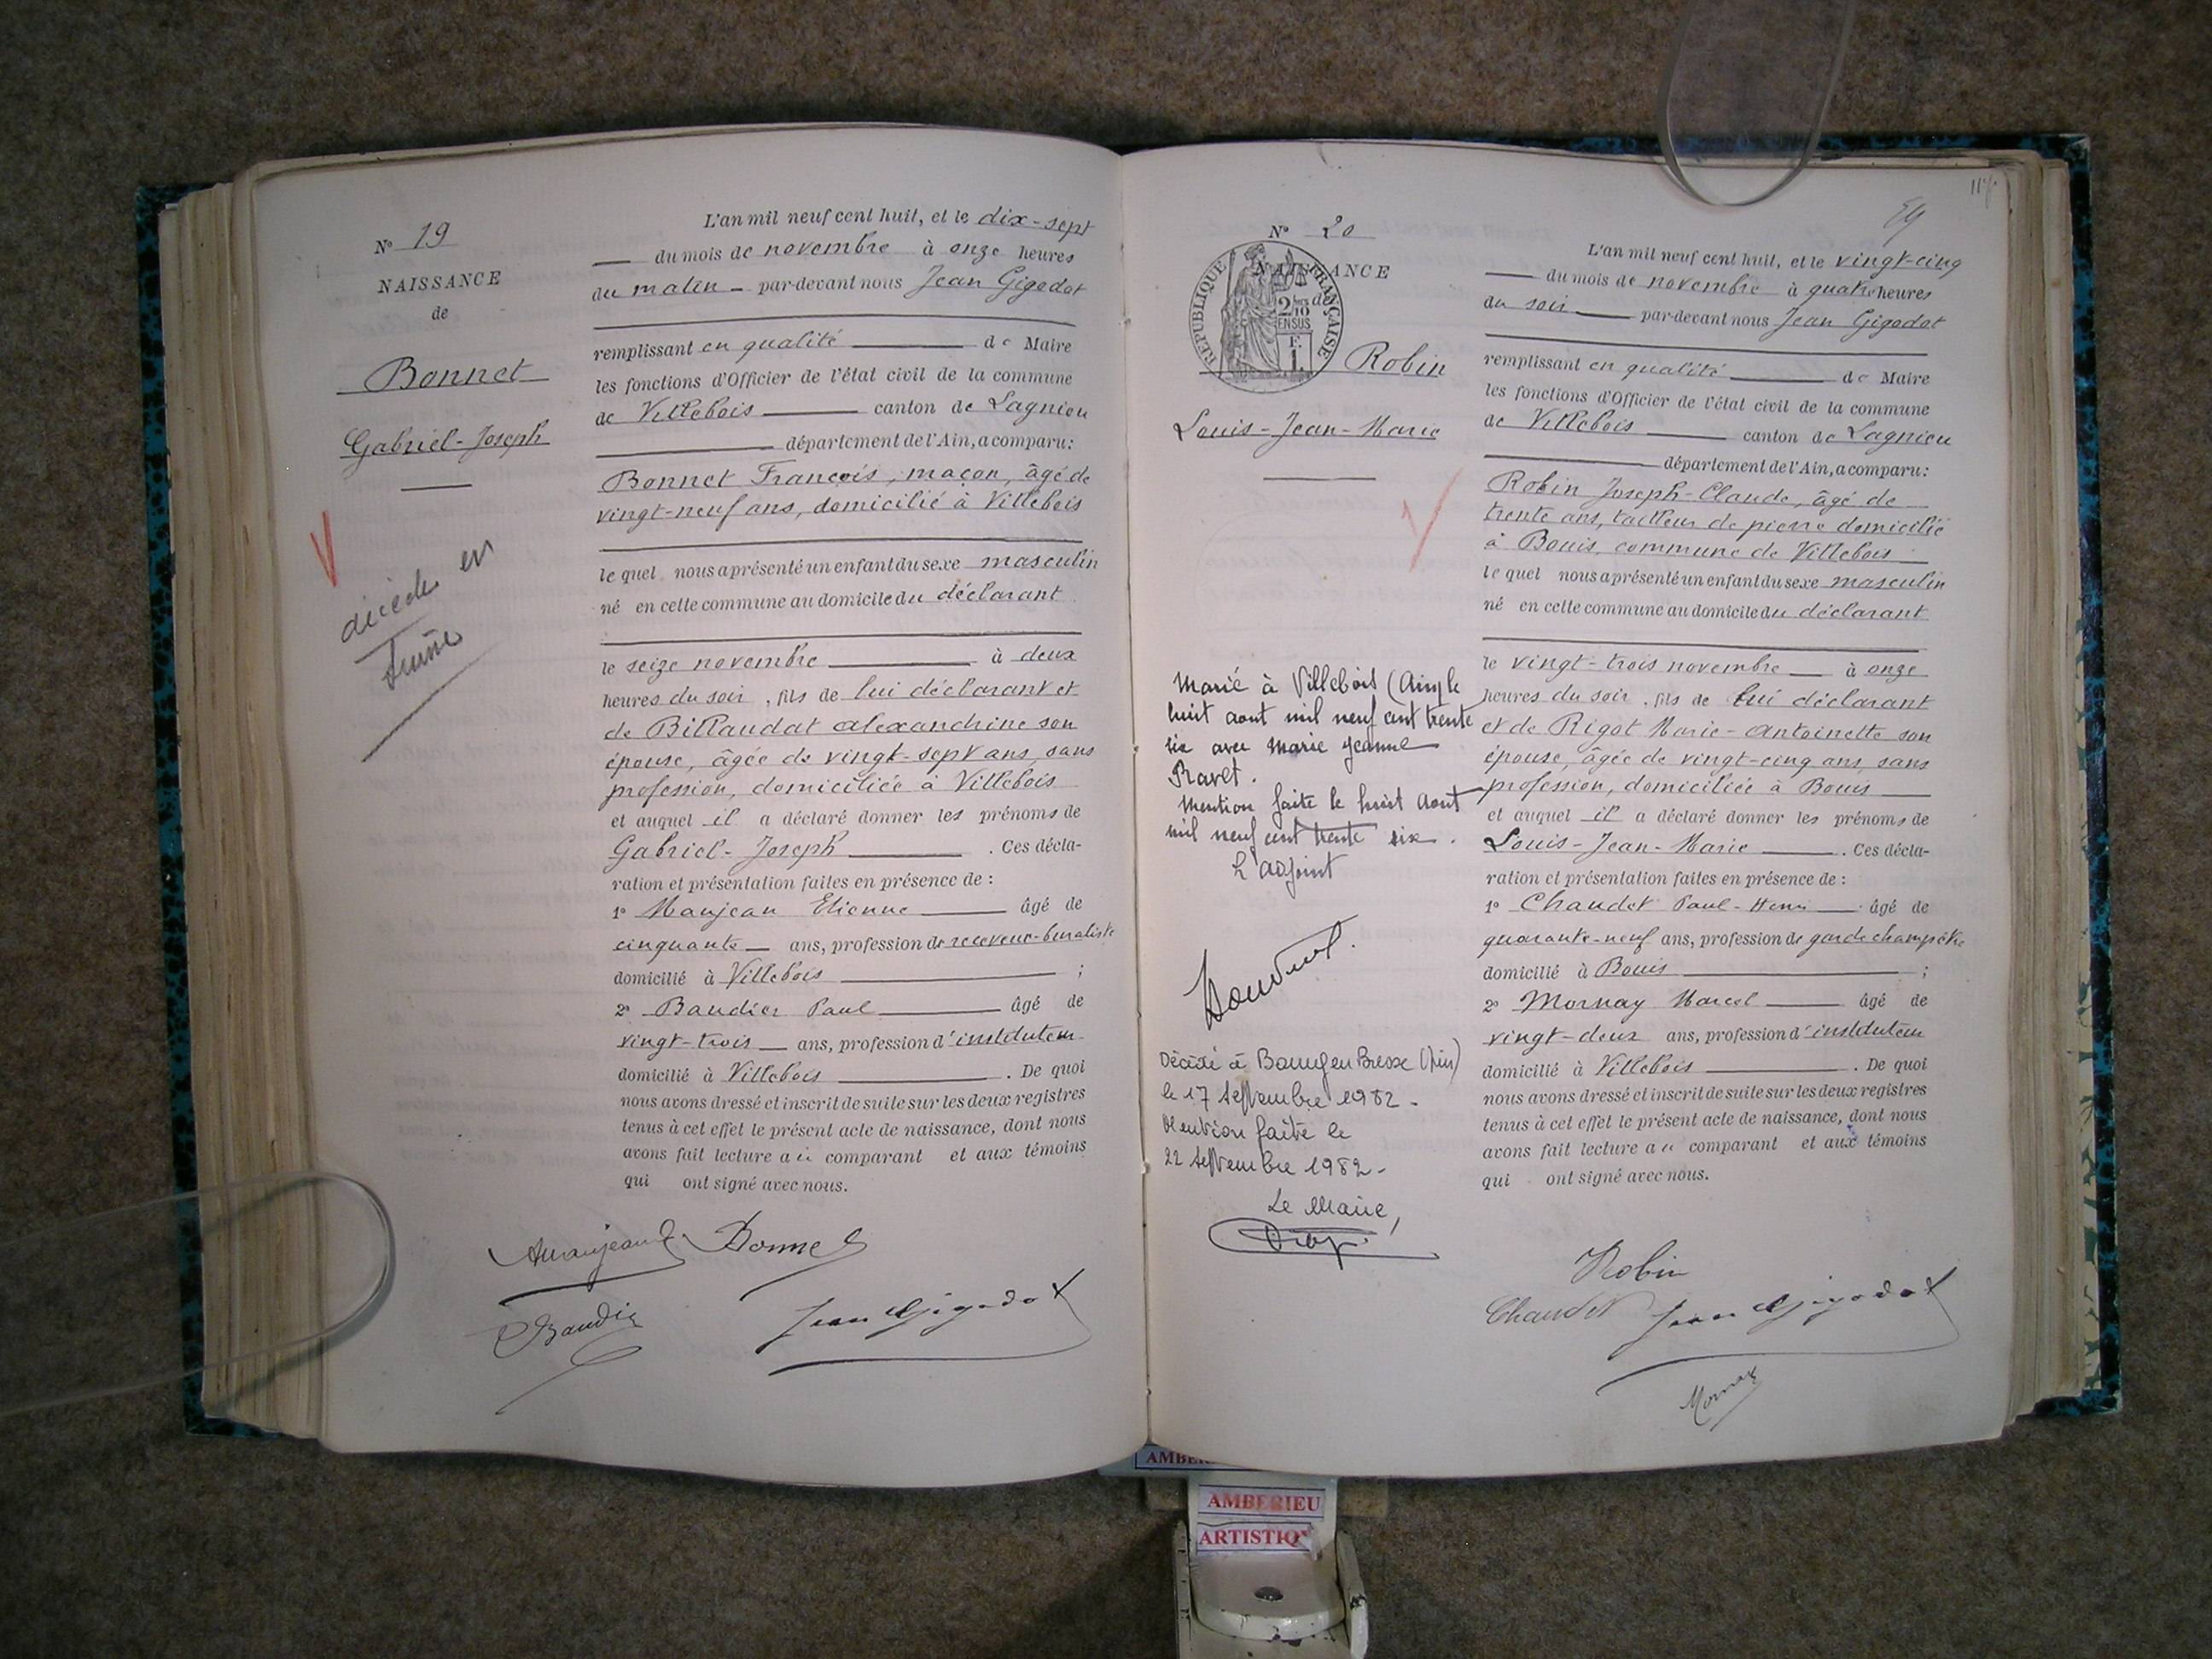 N° 19
NAISSANCE
de
Bonnet
Gabriel-Joseph
décédé en
L'an mil neuf cent huit, et le dix-sept
du mois de novembre à onze heures
du matin par-devant nous Jean Gigodot
remplissant en qualité de Maire
les fonctions d'Officier de l'état civil de la commune
de Villebois canton de Lagnieu
département de l'Ain, a comparu:
Bonnet François, maçon, âgé de
vingt-neuf ans, domicilié à Villebois
lequel nous a présenté un enfant du sexe masculin
né en cette commune au domicile du déclarant
le seize novembre à deux
heures du soir, fils de lui déclarant et
de Billaudat alexandrine son
épouse, âgée de vingt-sept ans, sans
profession, domiciliée à Villebois
et auquel il a déclaré donner les prénoms de
Gabriel-Joseph . Ces décla-
ration et présentation faites en présence de :
1° Manjean Etienne âgé de
cinquante ans, profession de receveur-buraliste
domicilié à Villebois ;
2° Baudier Paul âgé de
vingt-trois ans, profession d'instituteur
domicilié à Villebois . De quoi
nous avons dressé et inscrit de suite sur les deux registres
tenus à cet effet le présent acte de naissance, dont nous
avons fait lecture au comparant et aux témoins
qui ont signé avec nous.
Amanjean Bonnet
Baudier Jean Gigodot
N° 20
NAISSANCE
de
RÉPUBLIQUE FRANÇAISE
2/10
EN SUS
F.
1.
Robin
Louis-Jean-Marie
Marié à Villebois (Ain) le
huit aout mil neuf cent trente
six avec Marie Jeanne
Ravet.
Mention faite le huit Aout
mil neuf cent trente six.
L'adjoint
Décédé à Bourg en Bresse (Ain)
le 17 Septembre 1982 -
Mention faite le
22 Septembre 1982 -
Le Maire,
117
59
L'an mil neuf cent huit, et le vingt-cinq
du mois de novembre à quatre heures
du soir par-devant nous Jean Gigodot
remplissant en qualité de Maire
les fonctions d'Officier de l'état civil de la commune
de Villebois canton de Lagnieu
département de l'Ain, a comparu:
Robin Joseph-Claude, âgé de
trente ans, tailleur de pierre domicilié
à Bouis, commune de Villebois
lequel nous a présenté un enfant du sexe masculin
né en cette commune au domicile du déclarant
le vingt-trois novembre à onze
heures du soir, fils de lui déclarant
et de Rigot Marie-Antoinette son
épouse, âgée de vingt-cinq ans, sans
profession, domiciliée à Bouis
et auquel il a déclaré donner les prénoms de
Louis-Jean-Marie . Ces décla-
ration et présentation faites en présence de :
1° Chaudet Paul-Henri âgé de
quarante-neuf ans, profession de garde champêtre
domicilié à Bouis ;
2° Mornay Marcel âgé de
vingt-deux ans, profession d'instituteur
domicilié à Villebois . De quoi
nous avons dressé et inscrit de suite sur les deux registres
tenus à cet effet le présent acte de naissance, dont nous
avons fait lecture au comparant et aux témoins
qui ont signé avec nous.
Robin
Chaudet Jean Gigodot
Mornay
AMBERIEU
ARTISTIQ